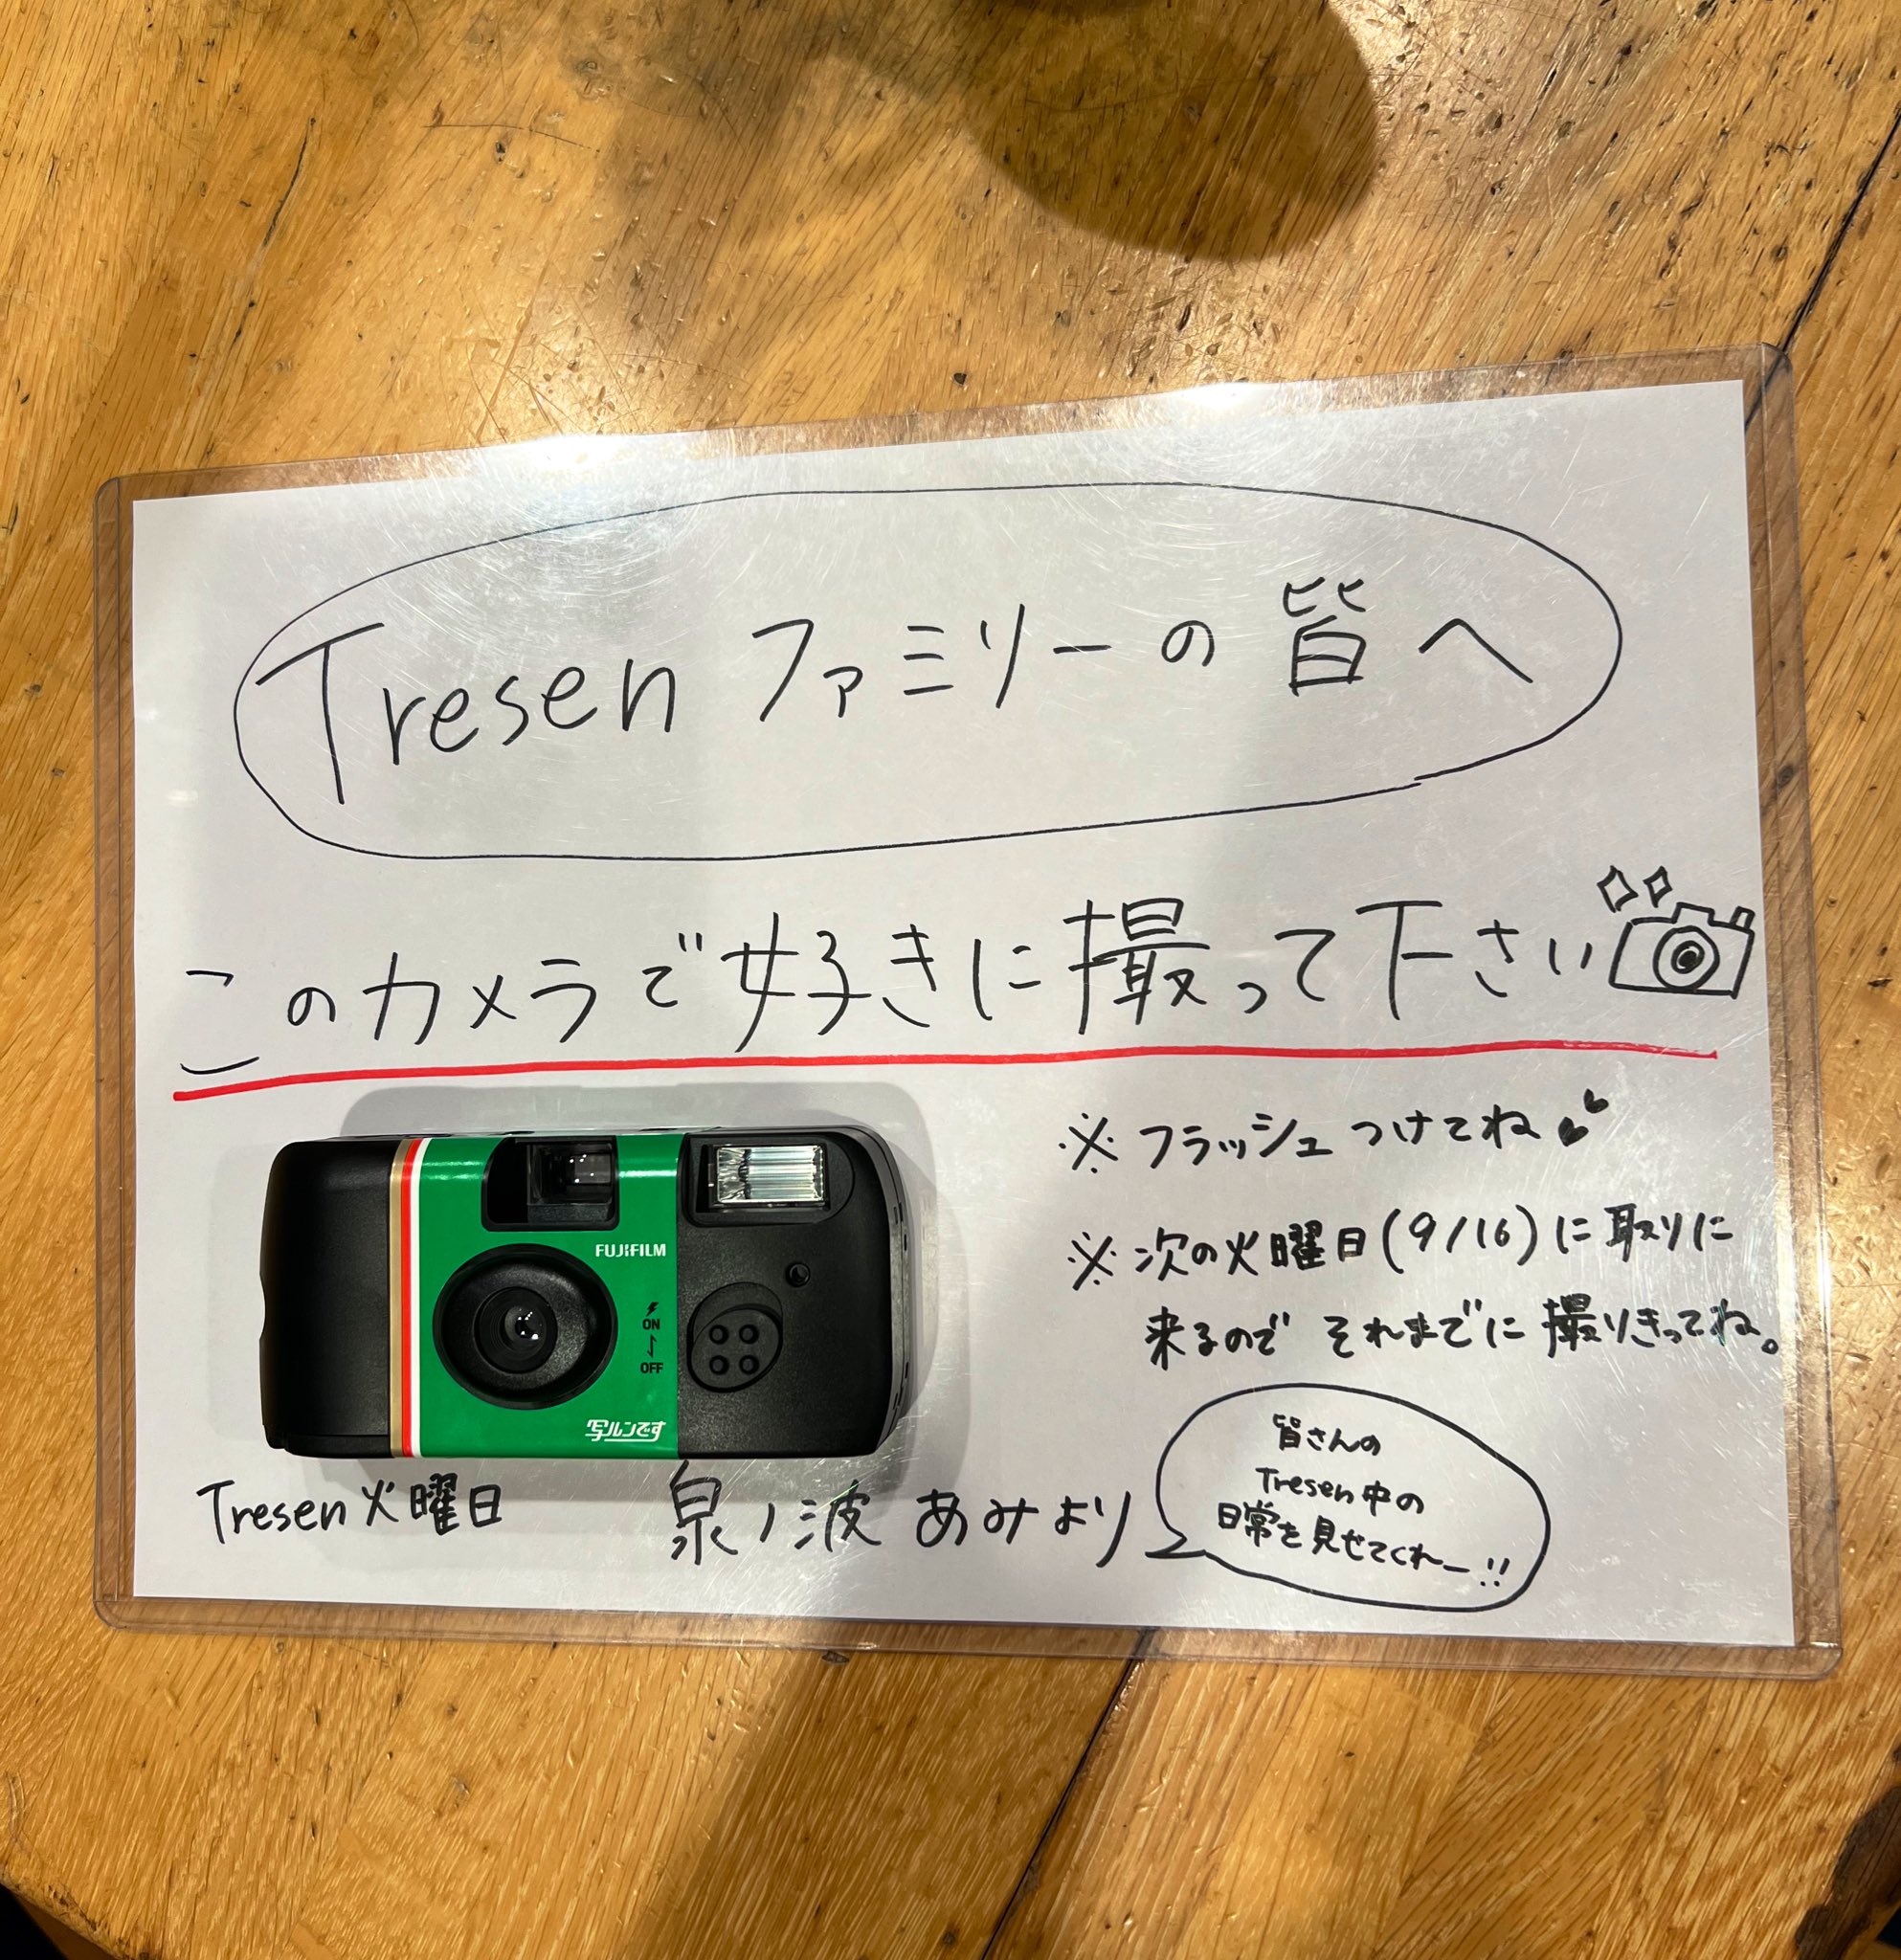 Tresen ファミリーの皆へ
このカメラで好きに撮って下さい
※フラッシュつけてね
※次の火曜日(9/16)に取りに
来るので それまでに撮りきってね。
FUJIFILM
ON
OFF
写ルンです
Tresen 火曜日 泉ノ波 あみより
皆さんの
Tresen中の
日常を見せてくれー!!